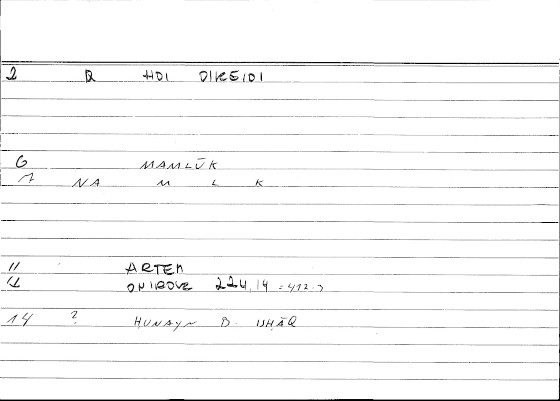 2 R HOI DIKEIOI
6 MAMLŪK
7 NA M L K
11 ARTEM
12 ONIROCR 224,14 = 412.7
14 ? HUNAYN B. ISHĀQ